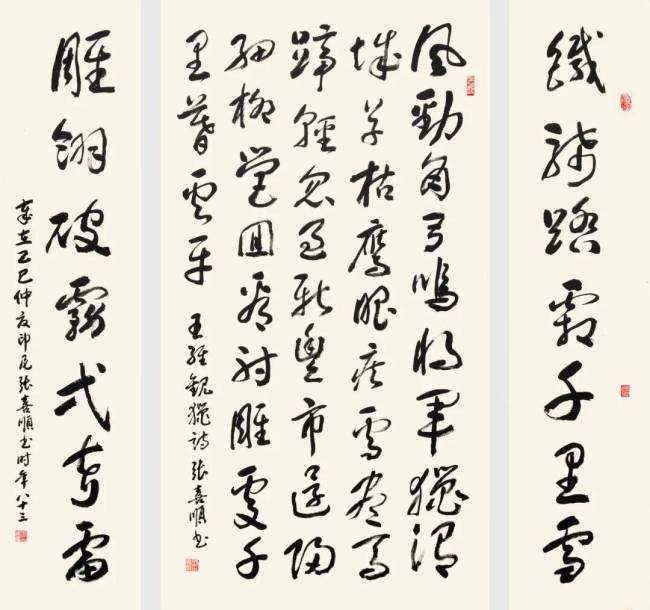 鐵騎踏霜千里雪
風勁角弓鳴将軍獵渭
城草枯鷹眼疾雪尽馬
蹄輕忽過新豐市還歸
細柳營回看射雕處千
里暮云平
王維觀獵詩 張喜順书
雕翎破霧弌声雷
歲在乙巳仲夏印尼張喜順书时年八十三